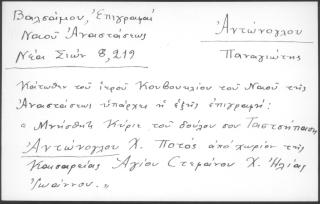 Βαλσάμου, Ἐπιγραφαὶ
Ναοῦ Ἀναστάσεως
Νέα Σιὼν 8, 219
Ἀντώνογλου
Παναγιώτης
Κάτωθεν τοῦ ἱεροῦ Κουβουκλίου τοῦ Ναοῦ τῆς
Ἀναστάσεως ὑπάρχει ἡ ἑξῆς ἐπιγραφή:
« Μνήσθητι Κύριε τοῦ δούλου σου
Ἀντώνογλου Χ. Ποτὸς ἀπὸ χωρίον τῆς
Καισαρείας Ἁγίου Στεφάνου Χ. Ἠλίας
Ἰωάννου. »